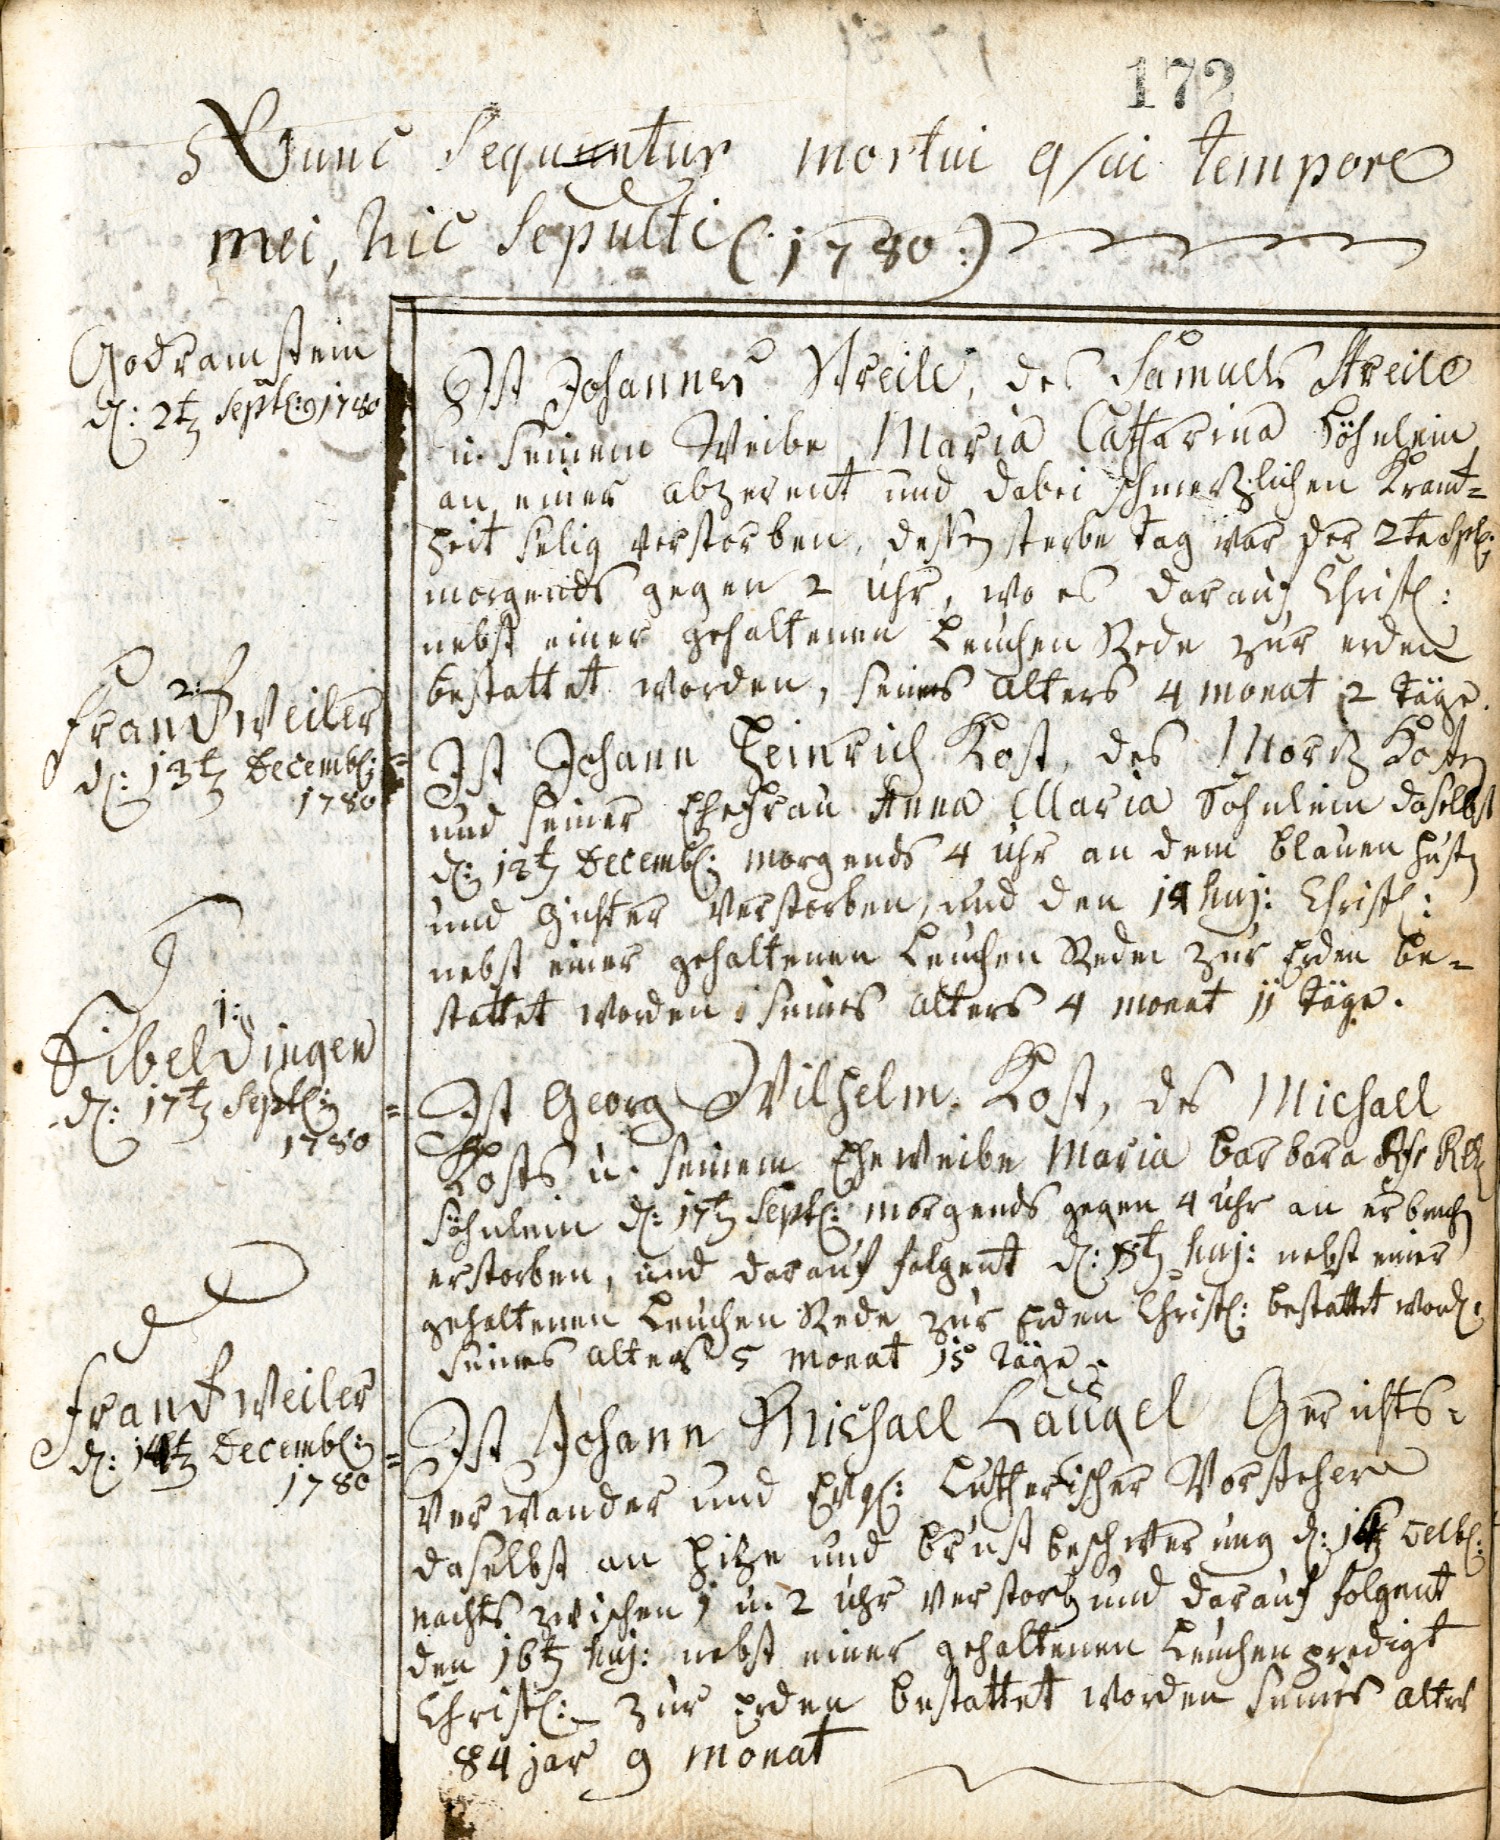 172
Nunc Sequntur mortui qui tempore
mei, hic Sepulti (: 1780 :)
Godramstein
d: 2t Sept: 1780
Ist Johannes Streile, des Samuels Streile
u. Seinem Weibe Maria Catharina Söhnlein
an einer abzerent und dabei schmertzlichen Krant=
heit selig verstorben, dessen sterbe tag war der 2te Sept:
morgends gegen 2 Uhr, wo es darauf Christl:
nebst einer gehaltenen Leuchen Rede zur erden
bestattet worden, seines alters 4 monat 2 täge.
2:
Frankweiler
d: 13t Decemb:
1780
Ist Johann Heinrich Kost, des Moritz Kosten
und seiner Ehefrau Anna Maria Söhnlein daselbst
d: 13t Decemb: morgends 4 Uhr an dem blauen husten
und Gichter verstorben, und den 14 huj: Christl:
nebst einer gehaltenen Leuchen Reden zur Erden be=
stattet worden, seines alters 4 monat 11 täge.
1:
Sibeldingen
d: 17t Sept:
1780
Ist Georg Wilhelm Kost, des Michael
Kosts u. seinem Eheweibe Maria barbara
Söhnlein d: 17t Sept: morgends gegen 4 Uhr an erbrechen
erstorben, und darauf folgent d: 18t huj: nebst einer
gehaltenen Leuchen Rede zur Erden Christl: bestattet word:
seines alters 5 monat 15 täge.
Frankweiler
d: 14t Decemb:
1780
Ist Johann Michael Laugel Gerichts=
verwander und Evgl: Lutherischer Vorsteher
daselbst an Hitze und brust beschwerung d: 14t
nachts zwischen 1 u. 2 Uhr verstorben und darauf folgent
den 16t huj: nebst einer gehaltenen Leuchen predigt
Christl: zur Erden bestattet worden seines alters
84 jar 9 monat